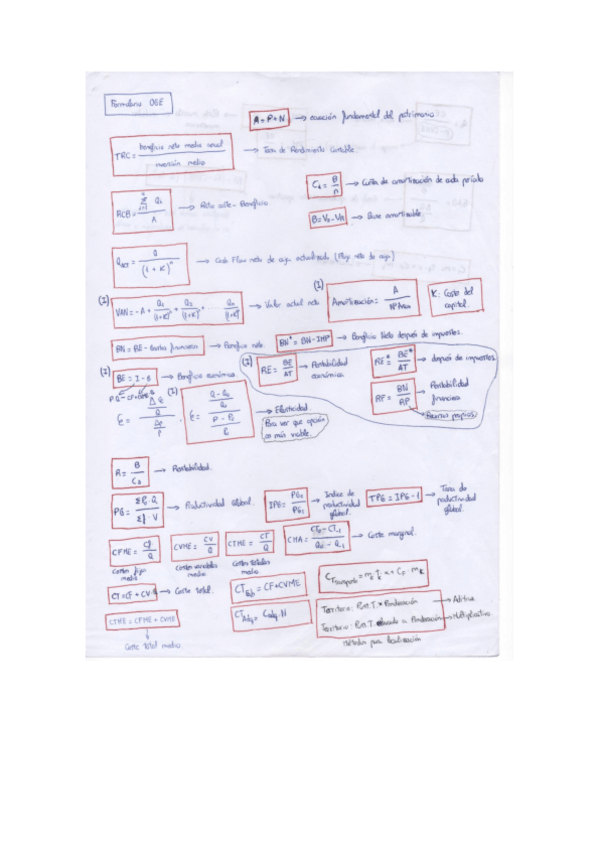 Formulario OGE
A = P + N → ecuación fundamental del patrimonio
TRC = beneficio neto medio anual / inversión media → Tasa de Rendimiento Contable.
C_A = B/n → Cuota de amortización de cada período
RCB = Σ Q_i / A → Ratio coste - Beneficio
B = V_0 - V_R → Base amortizable.
Q_ACT = Q / (1 + K)^n → Cash Flow neto de caja actualizado (Flujo neto de caja)
(I) VAN = -A + Q_1/(1+K)^1 + Q_2/(1+K)^2 + ... Q_n/(1+K)^n → Valor actual neto
(I) Amortización = A / Nº Años
K: Coste del capital.
BN = BE - Gastos financieros → Beneficio neto.
BN* = BN - IMP → Beneficio Neto después de impuestos.
(I) BE = I - G → Beneficio económico.
(I) RE = BE/AT → Rentabilidad económica.
RE* = BE*/AT → después de impuestos
RF = BN/RP → Rentabilidad financiera
Recursos propios
ε = (ΔQ/Q) / (ΔP/P)
(I) ε = ((Q - Q_0)/Q_0) / ((P - P_0)/P_0) → Elasticidad
Para ver que opción es más viable.
R = B/C_0 → Rentabilidad.
PG = ΣP·Q / Σf·V → Productividad Global.
IPG = PG_0 / PG_1 → Índice de productividad global.
TPG = IPG - 1 → Tasa de productividad global.
CFME = CF/Q
CVME = CV/Q
CTME = CT/Q
CMA → Coste marginal.
Costes fijos medio
Costes variables medio
Costes totales medio
CT = CF + CV → Coste total.
CTME = CFME + CVME
Coste total medio
Territorio: Ponderación → Aditiva
Territorio: elevado a Ponderación → Multiplicativo
Métodos para localización